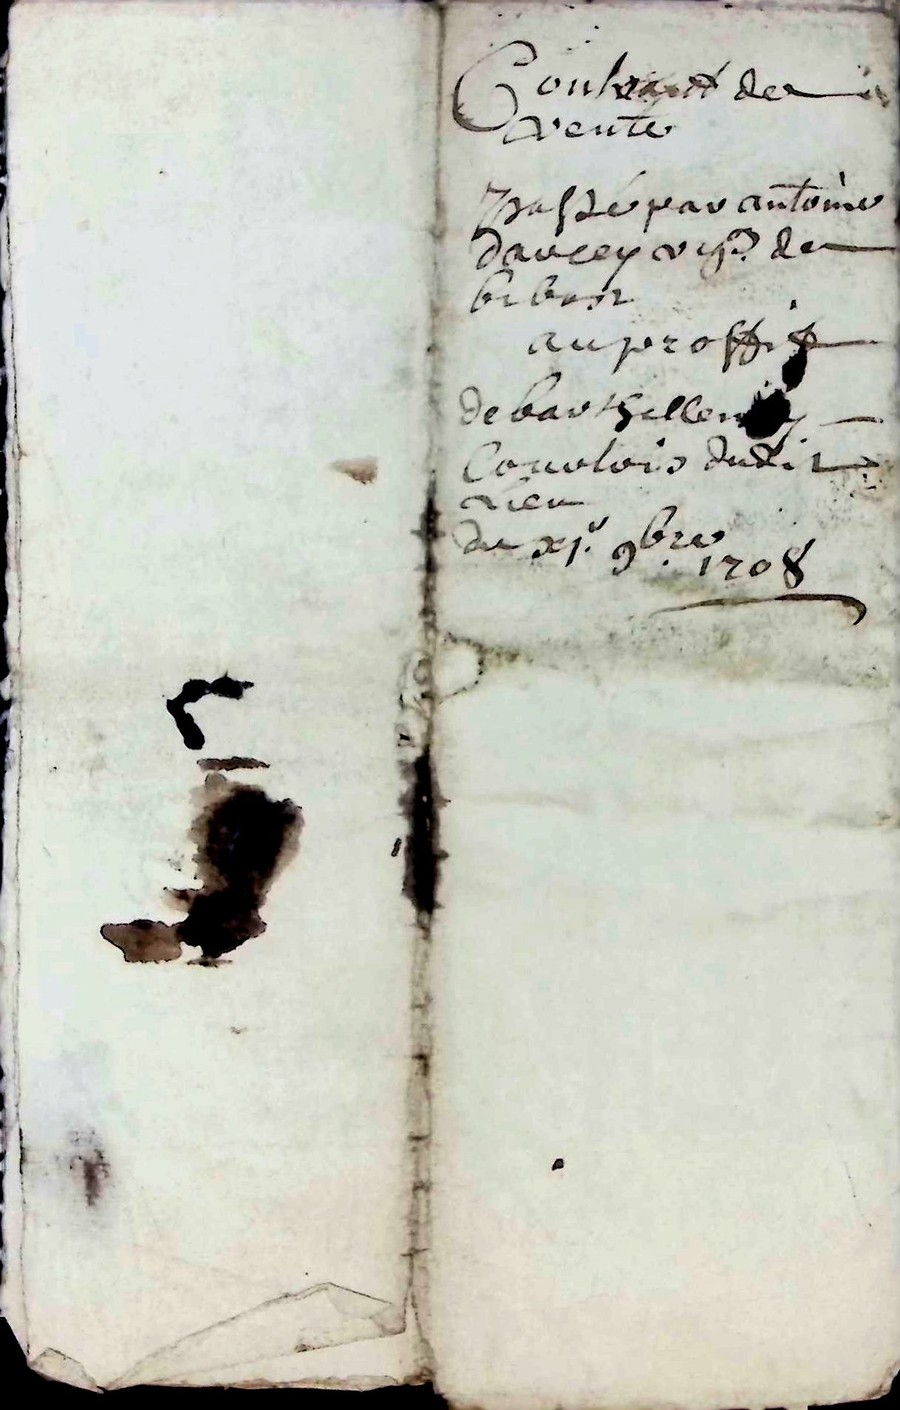 Contract de
vente
Passé par antoine
dancey vig.^n de
bibost
au proffit
de barthellemy
Courtois dudit
lieu
du xj.^e 9^bre 1708